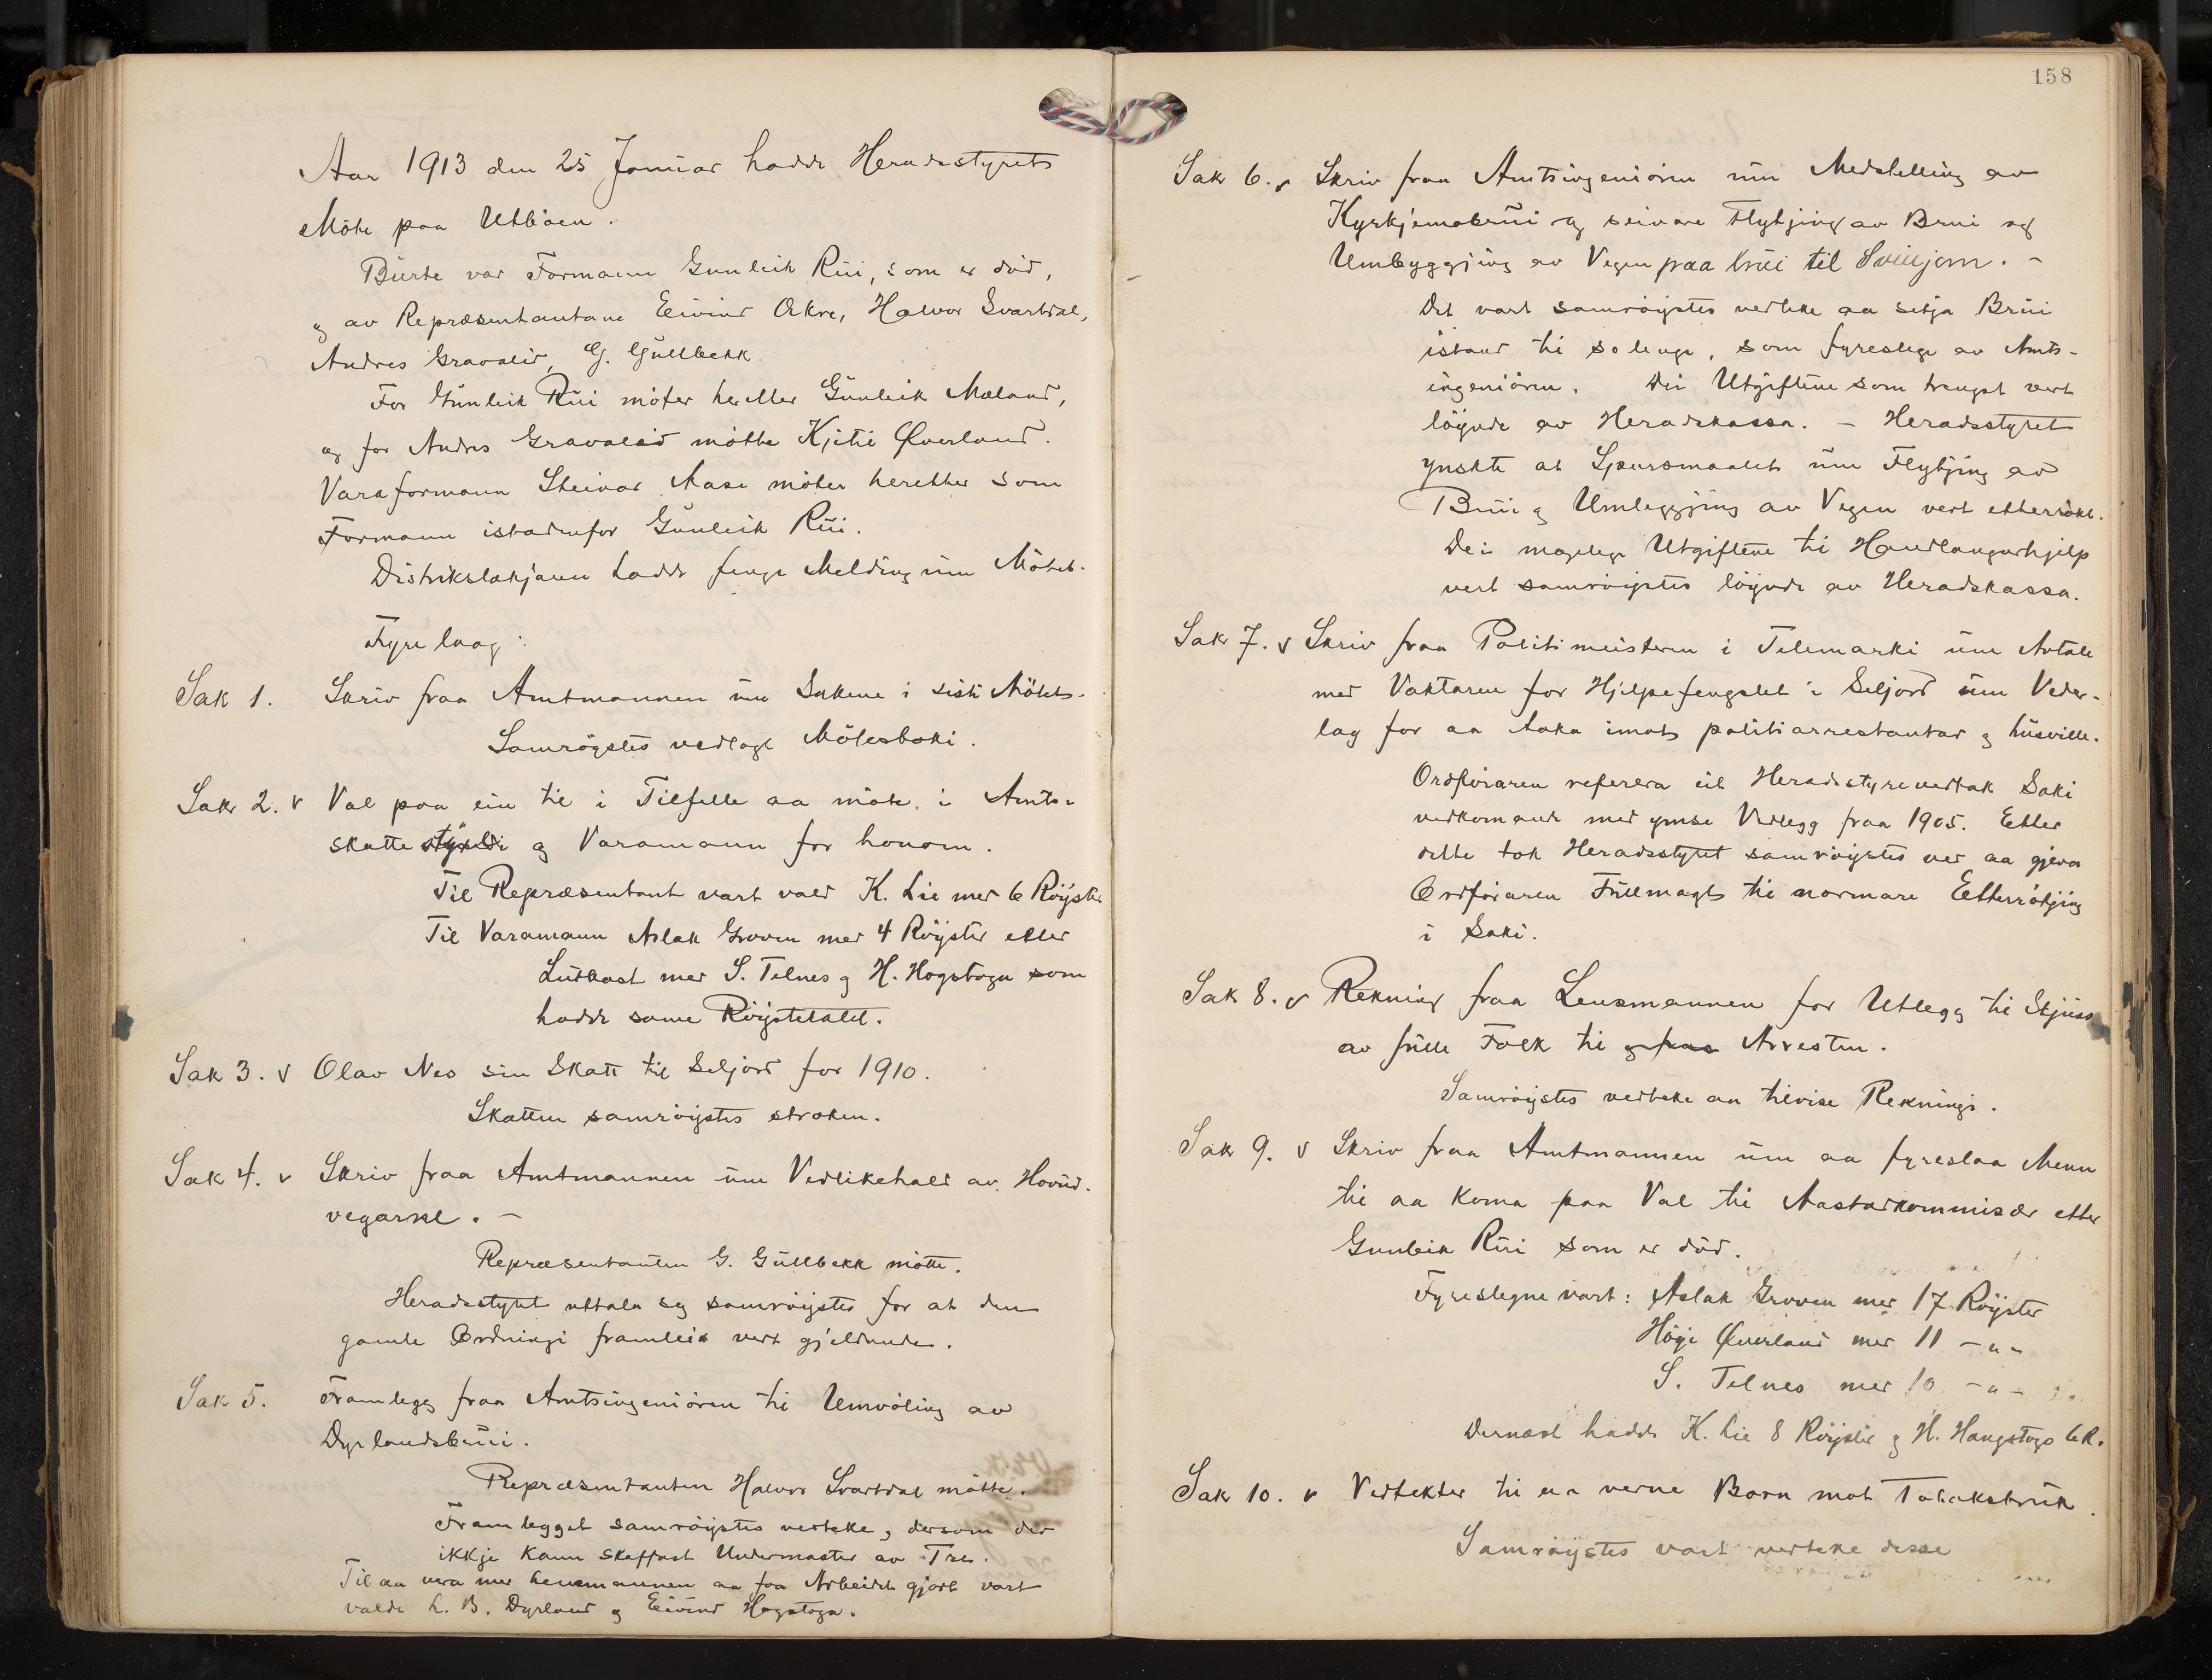 Aar 1913 den 25 Januar hadde Heradsstyrets
Möte paa Utböen.
Burte var Formann Gunleik Rui, som er död,
og av Repræsentantane Eivind Aakre, Halvor Svartdal,
Andres Gravalid, G. Gullbekk.
For Gunleik Rui möter heretter Gunleik Mæland,
og for Andres Gravalid mötte Kjetil Överland.
Varaformann Steinar Aase möter heretter som
Formann istadenfor Gunleik Rui.
Distrikslækjaren hadde fenge Melding um Mötet.
Fyrelaag:
Sak 1. Skriv fraa Amtmannen um Sakene i siste Mötet.
Samröystes vedlagt Mötesboki.
Sak 2. v Val paa ein til i Tilfelle aa möte i Amts-
skattestyret og Varamann for honom.
Til Repræsentant vart vald K. Lie med 6 Röyster
Til Varamann Aslak Grovum med 4 Röyster etter
Lutkast med S. Telnes og H. Hogstogu som
hadde same Röystetalet.
Sak 3. v Olav Nes sin Skatt til Seljord for 1910.
Skatten samröystes stroken.
Sak 4. v Skriv fraa Amtmannen um Vedlikehald av Hovud-
vegarne. -
Repræsentanten G. Gullbekk mötte.
Heradsstyret uttala seg samröystes for at den
gamle Ordningi framleis vert gjeldande.
Sak 5. Framlegg fraa Amtsingeniören til Umvöling av
Dyrlandsbrui.
Repræsentanten Halvor Svartdal mötte.
Framlegget samröystes vedteke, dersom der
ikkje kann skaffast Undermaster av Tre.
Til aa vera med Lensmannen aa faa Arbeidet gjort vart
valde L. B. Dyrland og Eivind Hogstoga.
158
Sak 6. v Skriv fraa Amtsingeniören um Medstelling av
Kyrkjemobrui og seinare Flytjing av Brui og
Umbyggjing av Vegen paa brui til Svinjom. -
Det vart samröystes vedteke aa setja Brui
istand til so lenge, som fyreslege av Amts-
ingeniören. Dei Utgiftene som trengst vert
löyvde av Heradskassa. - Heradsstyret
ynskte at Spursmaalet um Flytjing av
Brui og Umleggjing av Vegen vert etterrökt.
Dei mogelege Utgiftene til Handlangarhjelp
vert samröystes löyvde av Heradskassa.
Sak 7. v Skriv fraa Politimeisteren i Telemarki um Avtale
med Vaktaren for Hjelpefengslet i Seljord um Veder-
lag for aa taka imot politiarrestantar og husville.
Ordföraren referera eit Heradsstyrevedtak Saki
vedkomande med ymse Vedlegg fraa 1905. Etter
dette tok Heradsstyret samröystes ved aa gjeva
Ordföraren Fullmagt til nærmare Etterrökjing
i Saki.
Sak 8. v Rekning fraa Lensmannen for Utlegg til Skjuss
av fulle Folk til og fraa Arresten.
Samröystes vedteke aa tilvise Rekningi.
Sak 9. v Skriv fraa Amtmannen um aa fyreslaa Menn
til aa koma paa Val til Aastadkommisær etter
Gunleik Rui som er död.
Fyreslegne vart: Aslak Grovum med 17 Röyster
Höye Överland med 11 - " -
S. Telnes med 10 - " -
Dernæst hadde K. Lie 8 Röyster og H. Haugstoga 6 R.
Sak 10. v Vedtekter til aa verne Born mot Tobaksbruk.
Samröystes vart vedteke desse